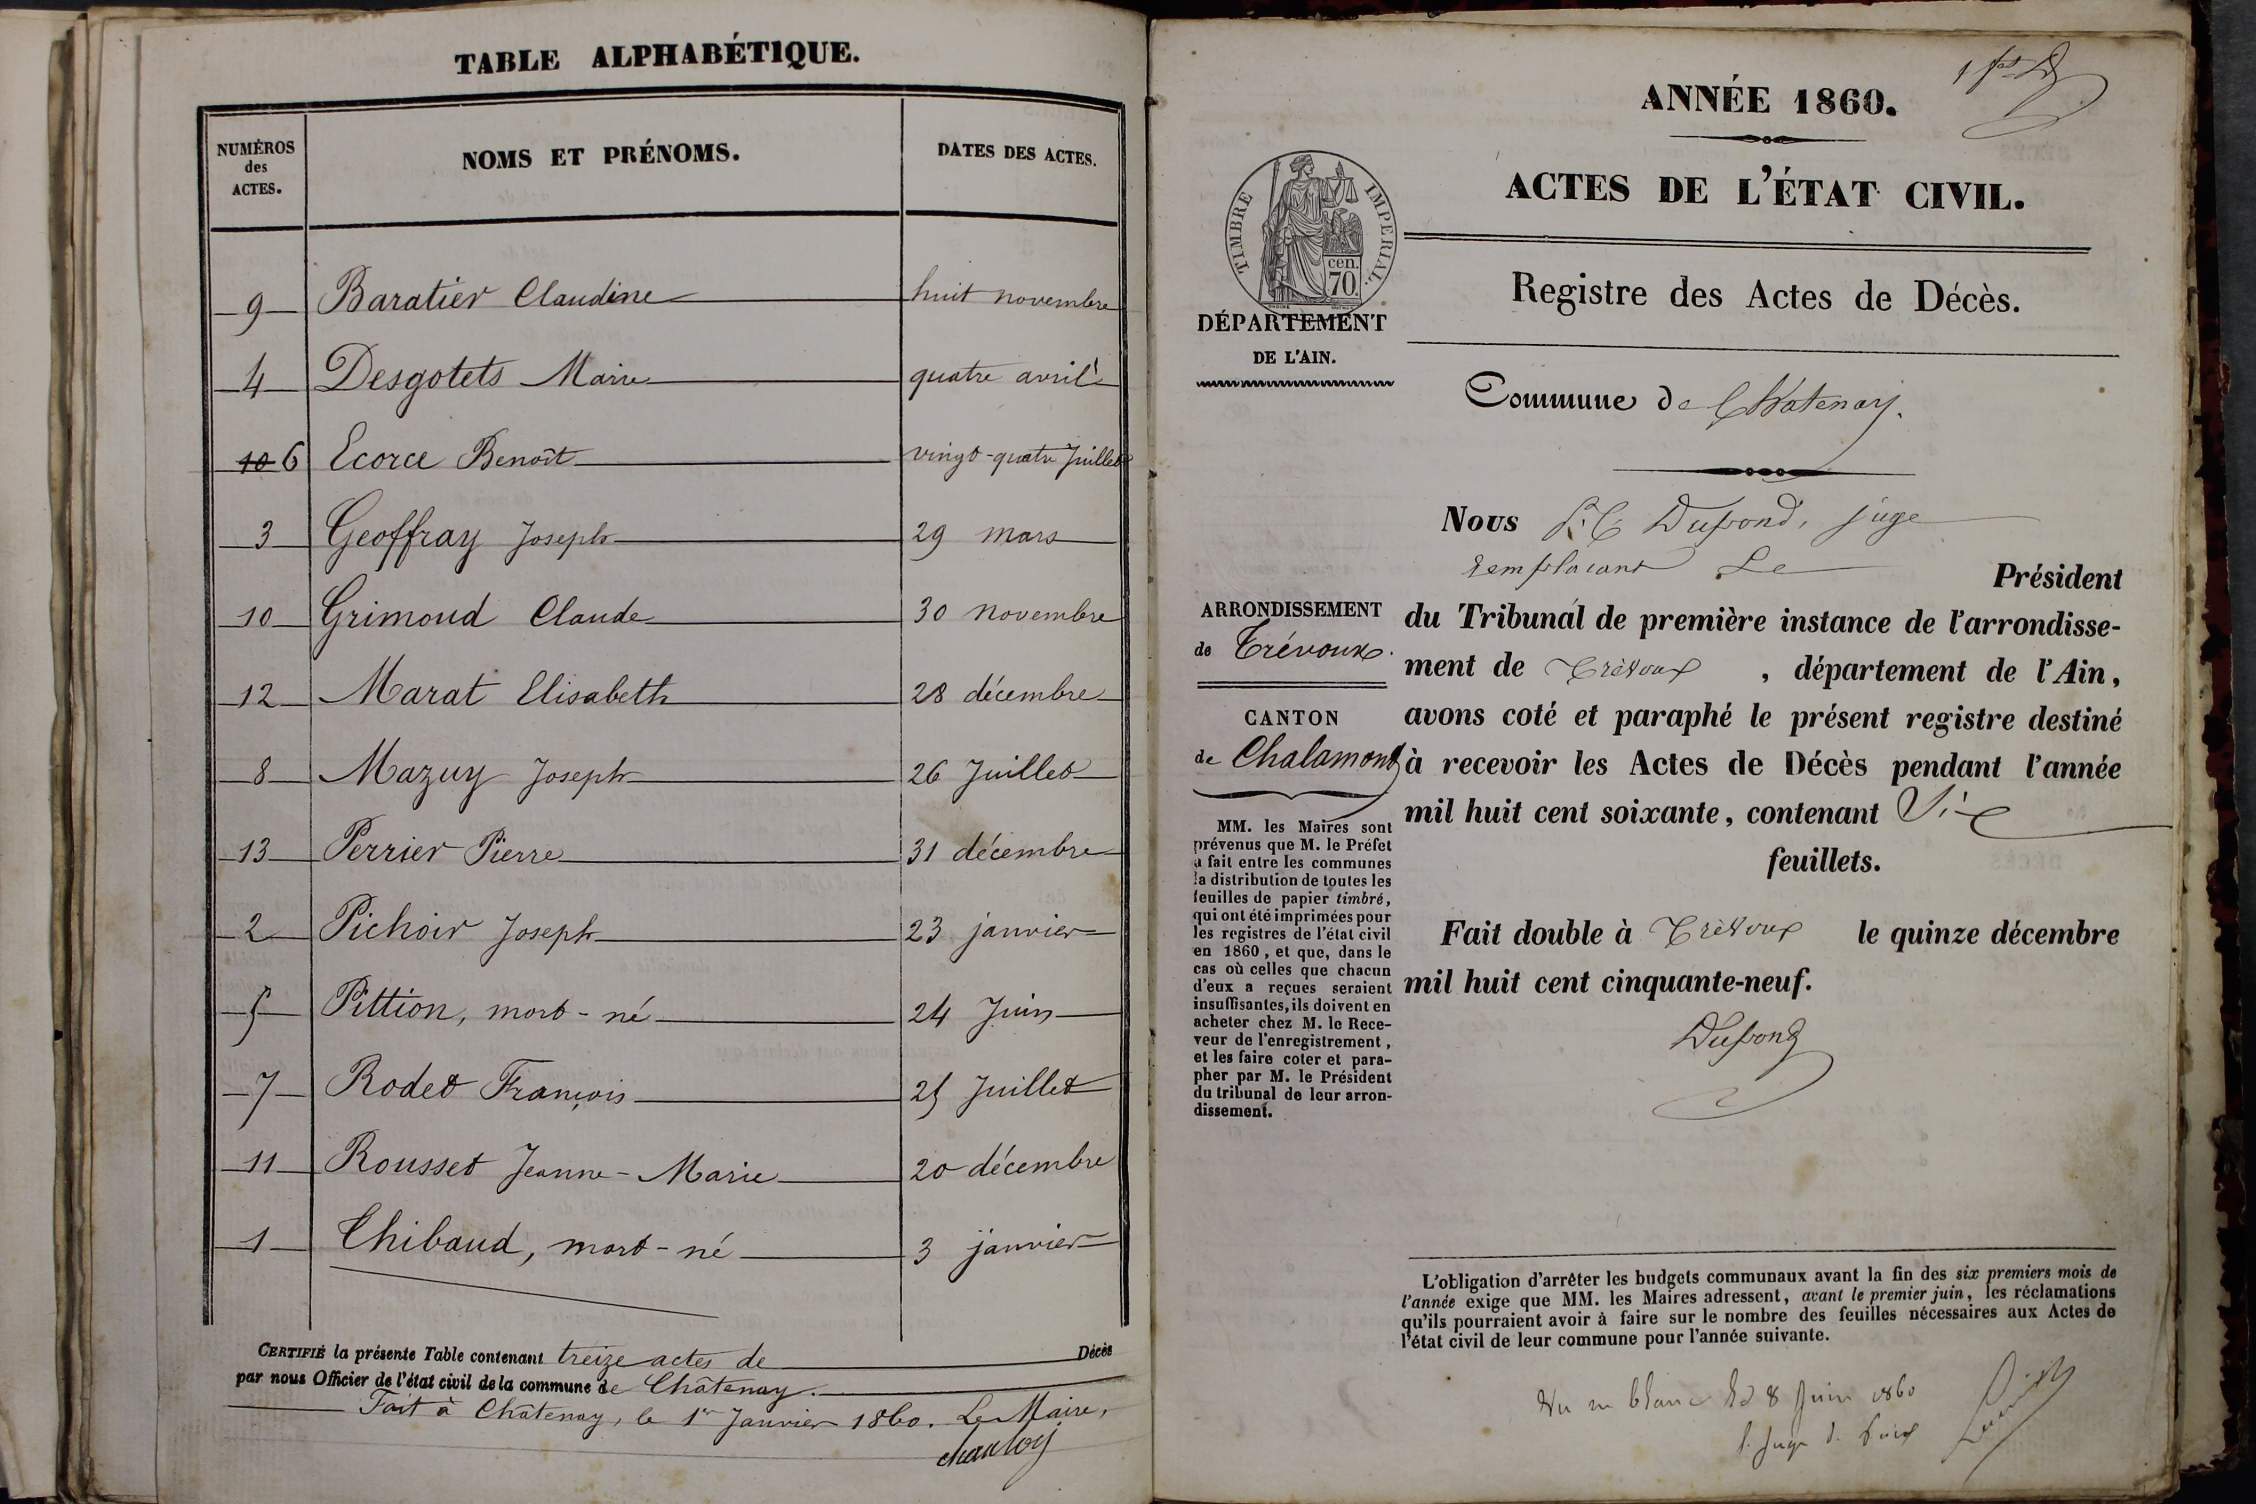 TABLE ALPHABÉTIQUE.
NUMÉROS
des
ACTES.
NOMS ET PRÉNOMS.
DATES DES ACTES.
9 Baratier Claudine huit novembre
4 Desgotets Marie quatre avril
10 6 Ecorce Benoît vingt-quatre Juillet
3 Geoffray Joseph 29 mars
10 Grimoud Claude 30 novembre
12 Marat Elisabeth 28 décembre
8 Mazuy Joseph 26 Juillet
13 Perrier Pierre 31 décembre
2 Pichoir Joseph 23 janvier
5 Pittion, mort-né 24 Juin
7 Rodet François 25 Juillet
11 Rousset Jeanne-Marie 20 décembre
1 Thibaud, mort-né 3 janvier
CERTIFIÉ la présente Table contenant treize actes de Décès
par nous Officier de l'état civil de la commune de Châtenay.
Fait à Châtenay, le 1er Janvier 1860. Le Maire,
ANNÉE 1860.
ACTES DE L'ÉTAT CIVIL.
TIMBRE IMPERIAL.
cen.
70
Registre des Actes de Décès.
DÉPARTEMENT
DE L'AIN.
Commune de Chatenay.
Nous Dupond, juge
remplacant Le Président
ARRONDISSEMENT
de Trévoux.
CANTON
de Chalamont
du Tribunal de première instance de l'arrondisse-
ment de Trévoux, département de l'Ain,
avons coté et paraphé le présent registre destiné
à recevoir les Actes de Décès pendant l'année
mil huit cent soixante, contenant Six
feuillets.
Fait double à Trévoux le quinze décembre
mil huit cent cinquante-neuf.
Dupond
MM. les Maires sont
prévenus que M. le Préfet
a fait entre les communes
la distribution de toutes les
feuilles de papier timbré,
qui ont été imprimées pour
les registres de l'état civil
en 1860, et que, dans le
cas où celles que chacun
d'eux a reçues seraient
insuffisantes, ils doivent en
acheter chez M. le Rece-
veur de l'enregistrement,
et les faire coter et para-
pher par M. le Président
du tribunal de leur arron-
dissement.
L'obligation d'arrêter les budgets communaux avant la fin des six premiers mois de
l'année exige que MM. les Maires adressent, avant le premier juin, les réclamations
qu'ils pourraient avoir à faire sur le nombre des feuilles nécessaires aux Actes de
l'état civil de leur commune pour l'année suivante.
Vu en blanc 8 Juin 1860
Juge de Paix